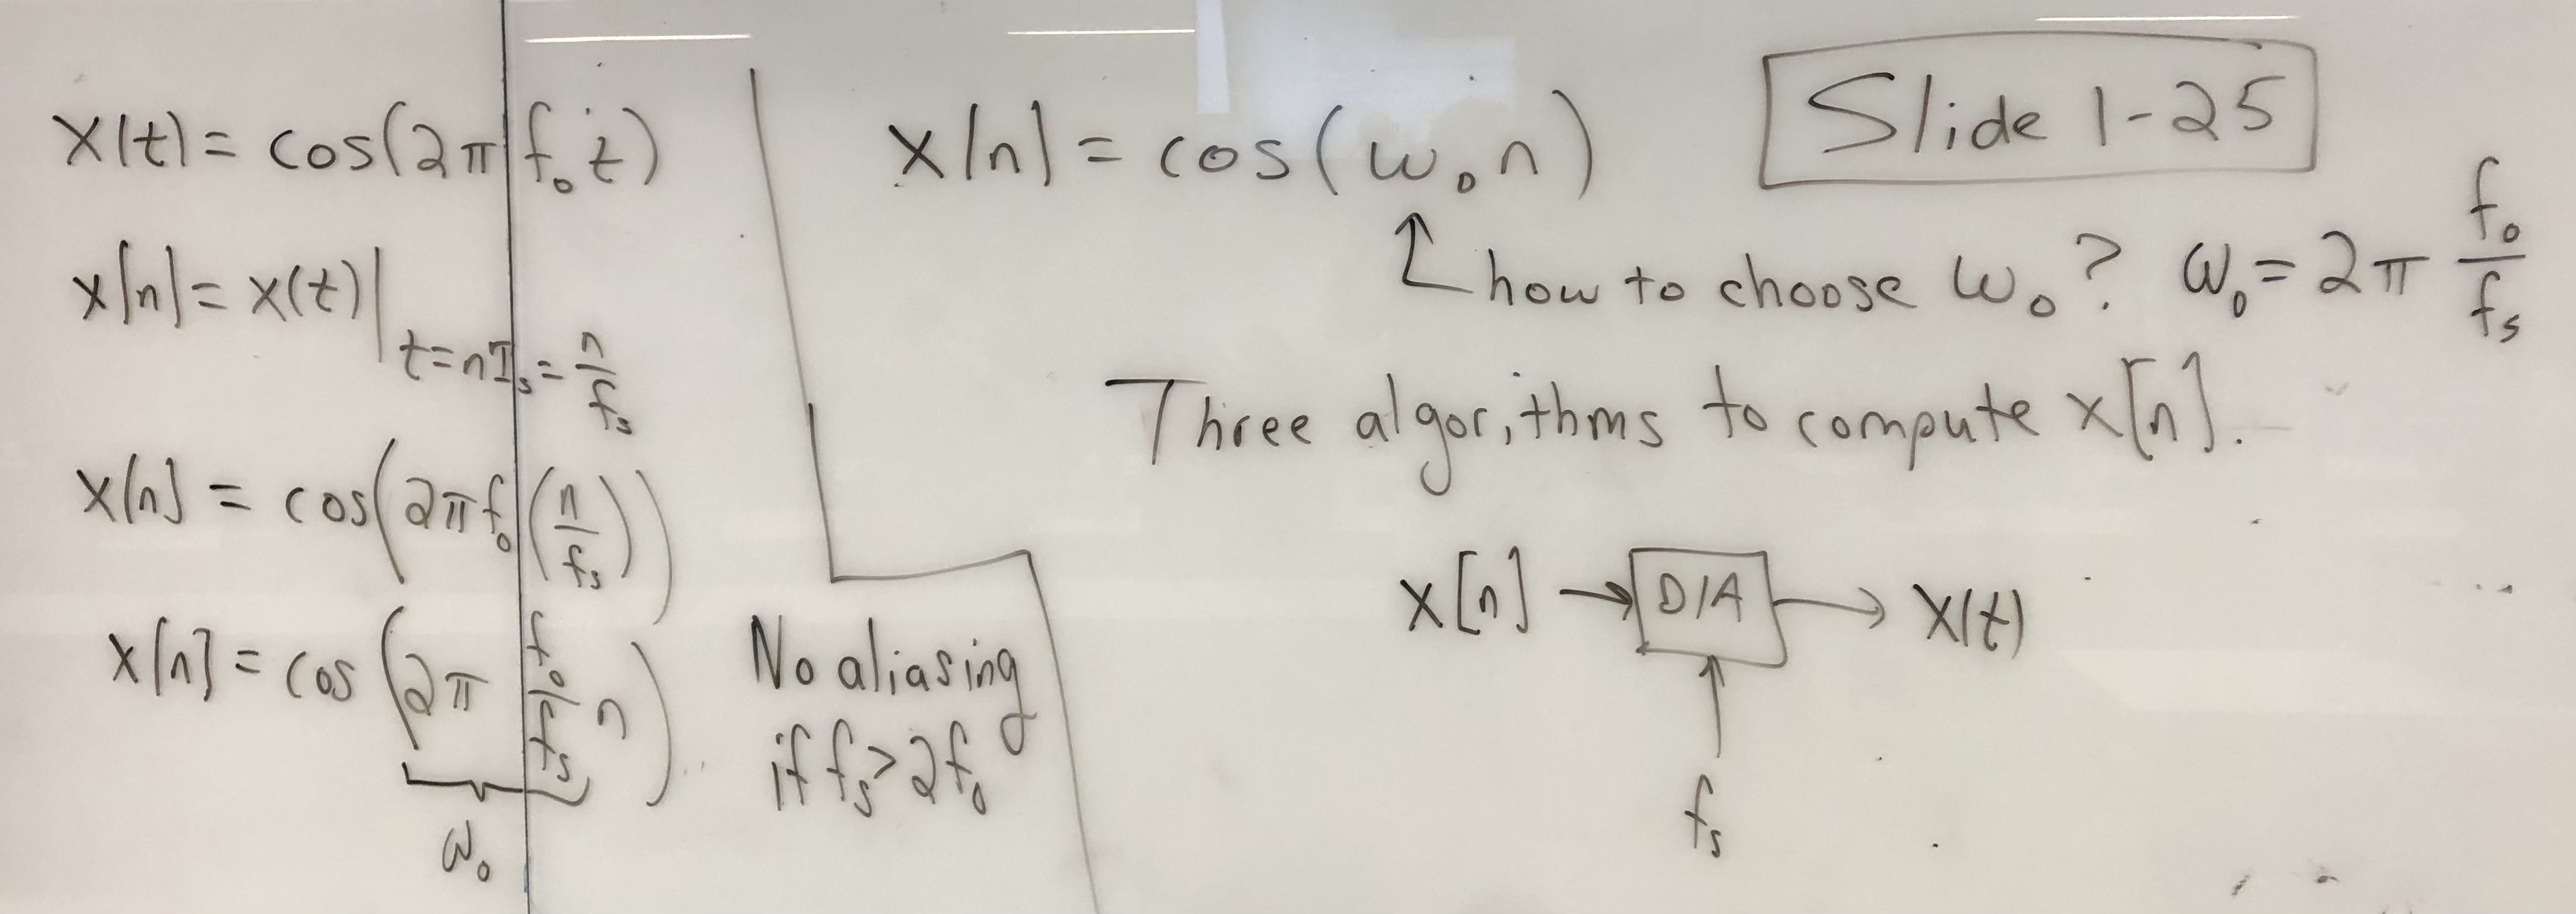 x(t) = cos(2π f₀ t)
x[n] = x(t)|
t = nTₛ = n/fₛ
x[n] = cos(2π f₀ (n/fₛ))
x[n] = cos(2π f₀/fₛ n)
ω₀
No aliasing
if fₛ > 2f₀
Slide 1-25
x[n] = cos(ω₀ n)
how to choose ω₀? ω₀ = 2π f₀/fₛ
Three algorithms to compute x[n].
x[n] → D/A → x(t)
fₛ